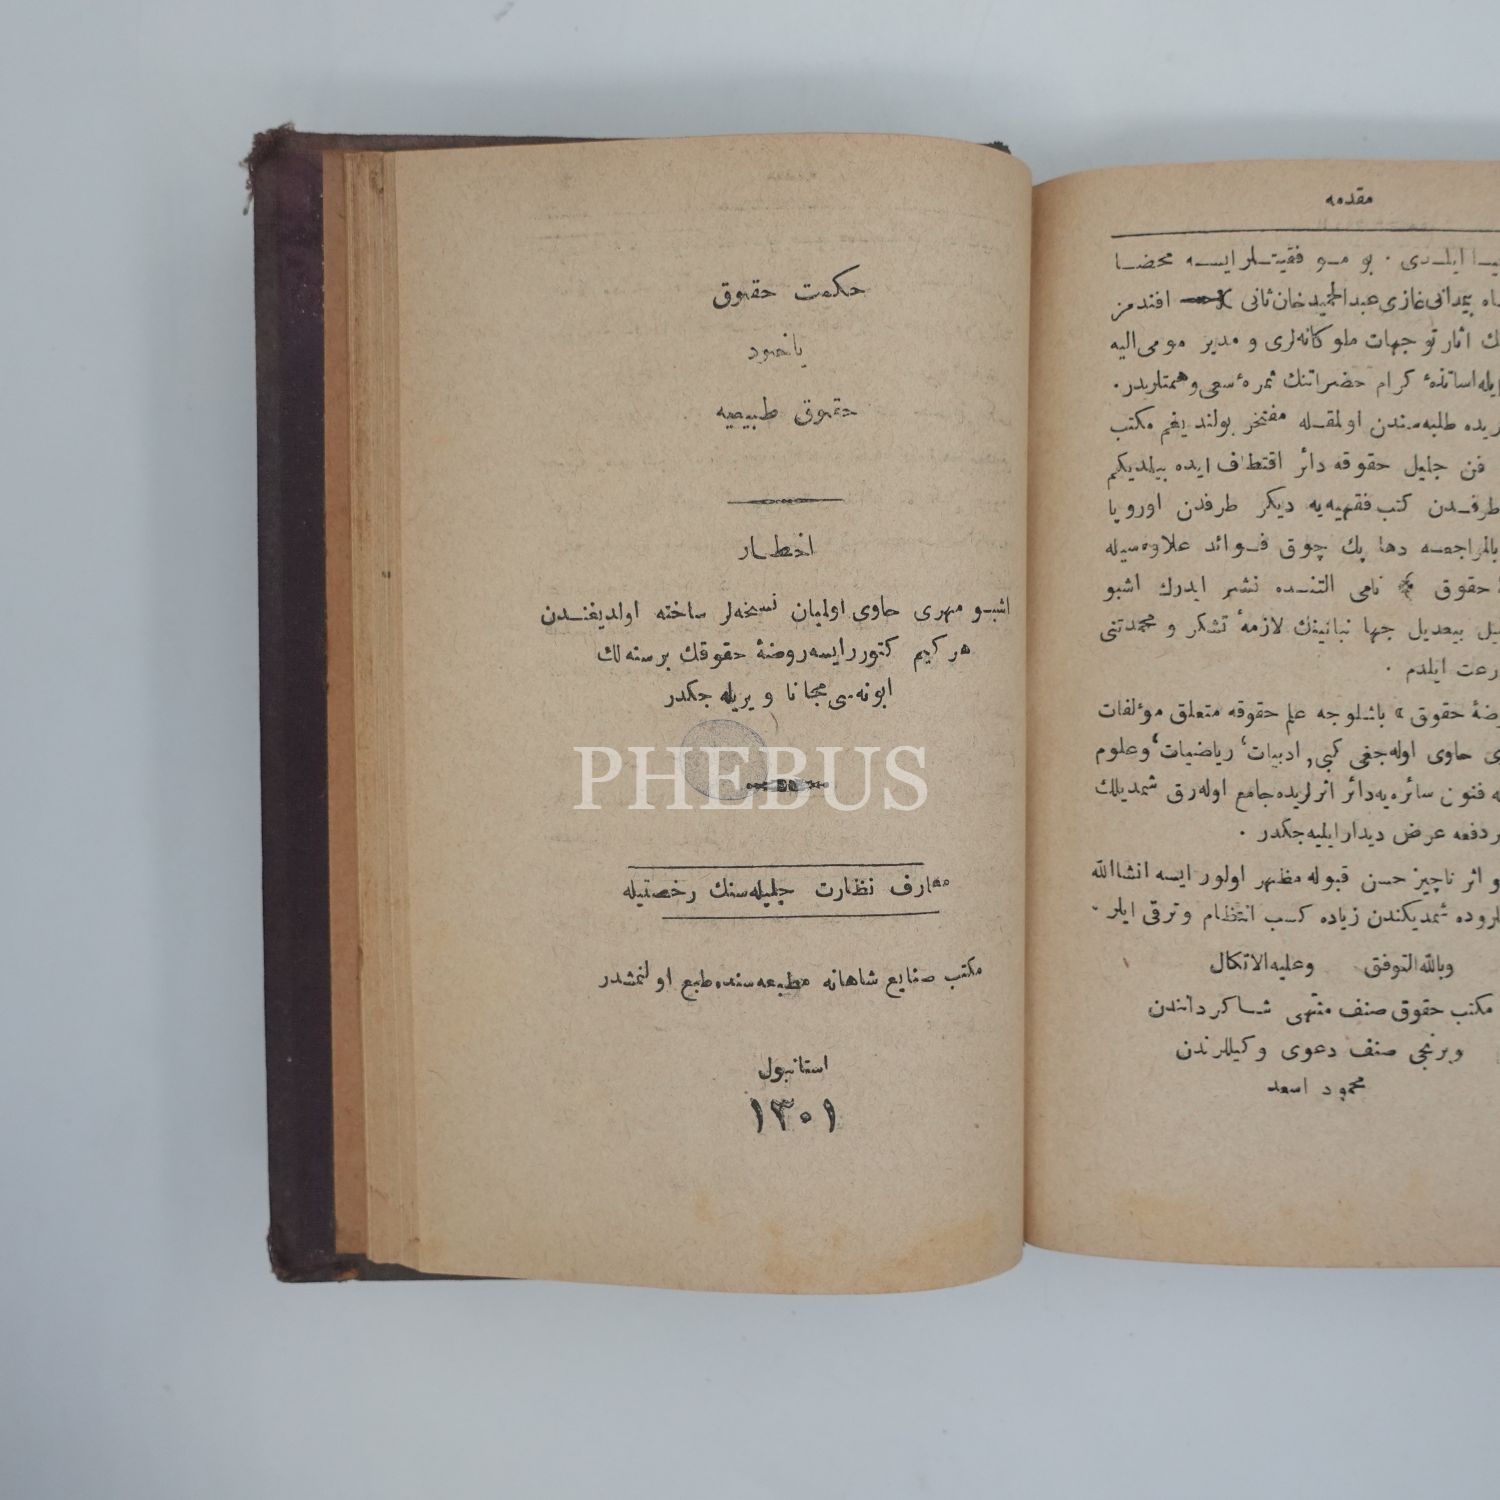 حكمت حقوق
ياخود
حقوق طبيعيه
اخطار
اشبو مهری حاوی اولميان نسخه‌لر ساخته اولديغندن
هر كيم كتورر ايسه روضهٔ حقوقك بر سنه‌لك
ابونه‌سی مجانا ويريله جكدر
PHEBUS
معارف نظارت جليله‌سنك رخصتيله
مكتب صنايع شاهانه مطبعه‌سنده طبع اولنمشدر
استانبول
١٣٠١
مقدمه
ايلدی . بو موفقيتلر ايسه محضا
غازی عبدالحميد خان ثانی افندمز
اثار توجهات ملوكانه‌لری و مدير مومی اليه
ايله اساتذهٔ كرام حضراتنك ثمرهٔ سعی وهمتلريدر .
طلبه‌سندن اولمقله مفتخر بولنديغم مكتب
فن جليل حقوقه دائر اقتطاف ايده بيلديكم
طرفدن كتب فقهيه‌يه ديكر طرفدن اوروپا
بالمراجعه دها پك چوق فوائد علاوه‌سيله
حقوق ﴾ نامی التنده نشر ايدرك اشبو
بيعديل جها نبانينك لازمهٔ تشكر و محمدتنی
ايلدم .
حقوق » باشلوجه علم حقوقه متعلق مؤلفات
حاوی اوله‌جغی كبی, ادبيات، رياضيات، وعلوم
فنون سائره‌يه دائر اثرلريده جامع اوله‌رق شمديلك
دفعه عرض ديدار ايليه‌جكدر .
و اثر ناچيز حسن قبوله مظهر اولور ايسه انشاالله
شمديكندن زياده كسب انتظام وترقی ايلر .
وبالله التوفق وعليه الاتكال
مكتب حقوق صنف منتهی شاكردانندن
وبرنجی صنف دعوی وكيللرندن
محمود اسعد